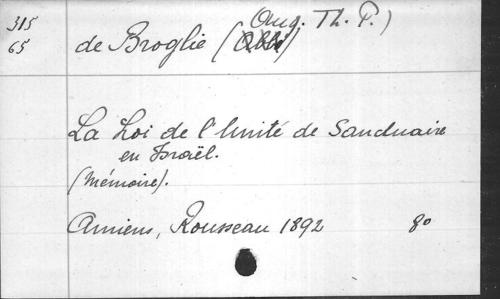 315
65
Aug. Th. P.)
de Broglie (Abbé)
La Loi de l'Unité de Sanctuaire
en Israël.
(Mémoire).
Amiens, Rousseau 1892 8o